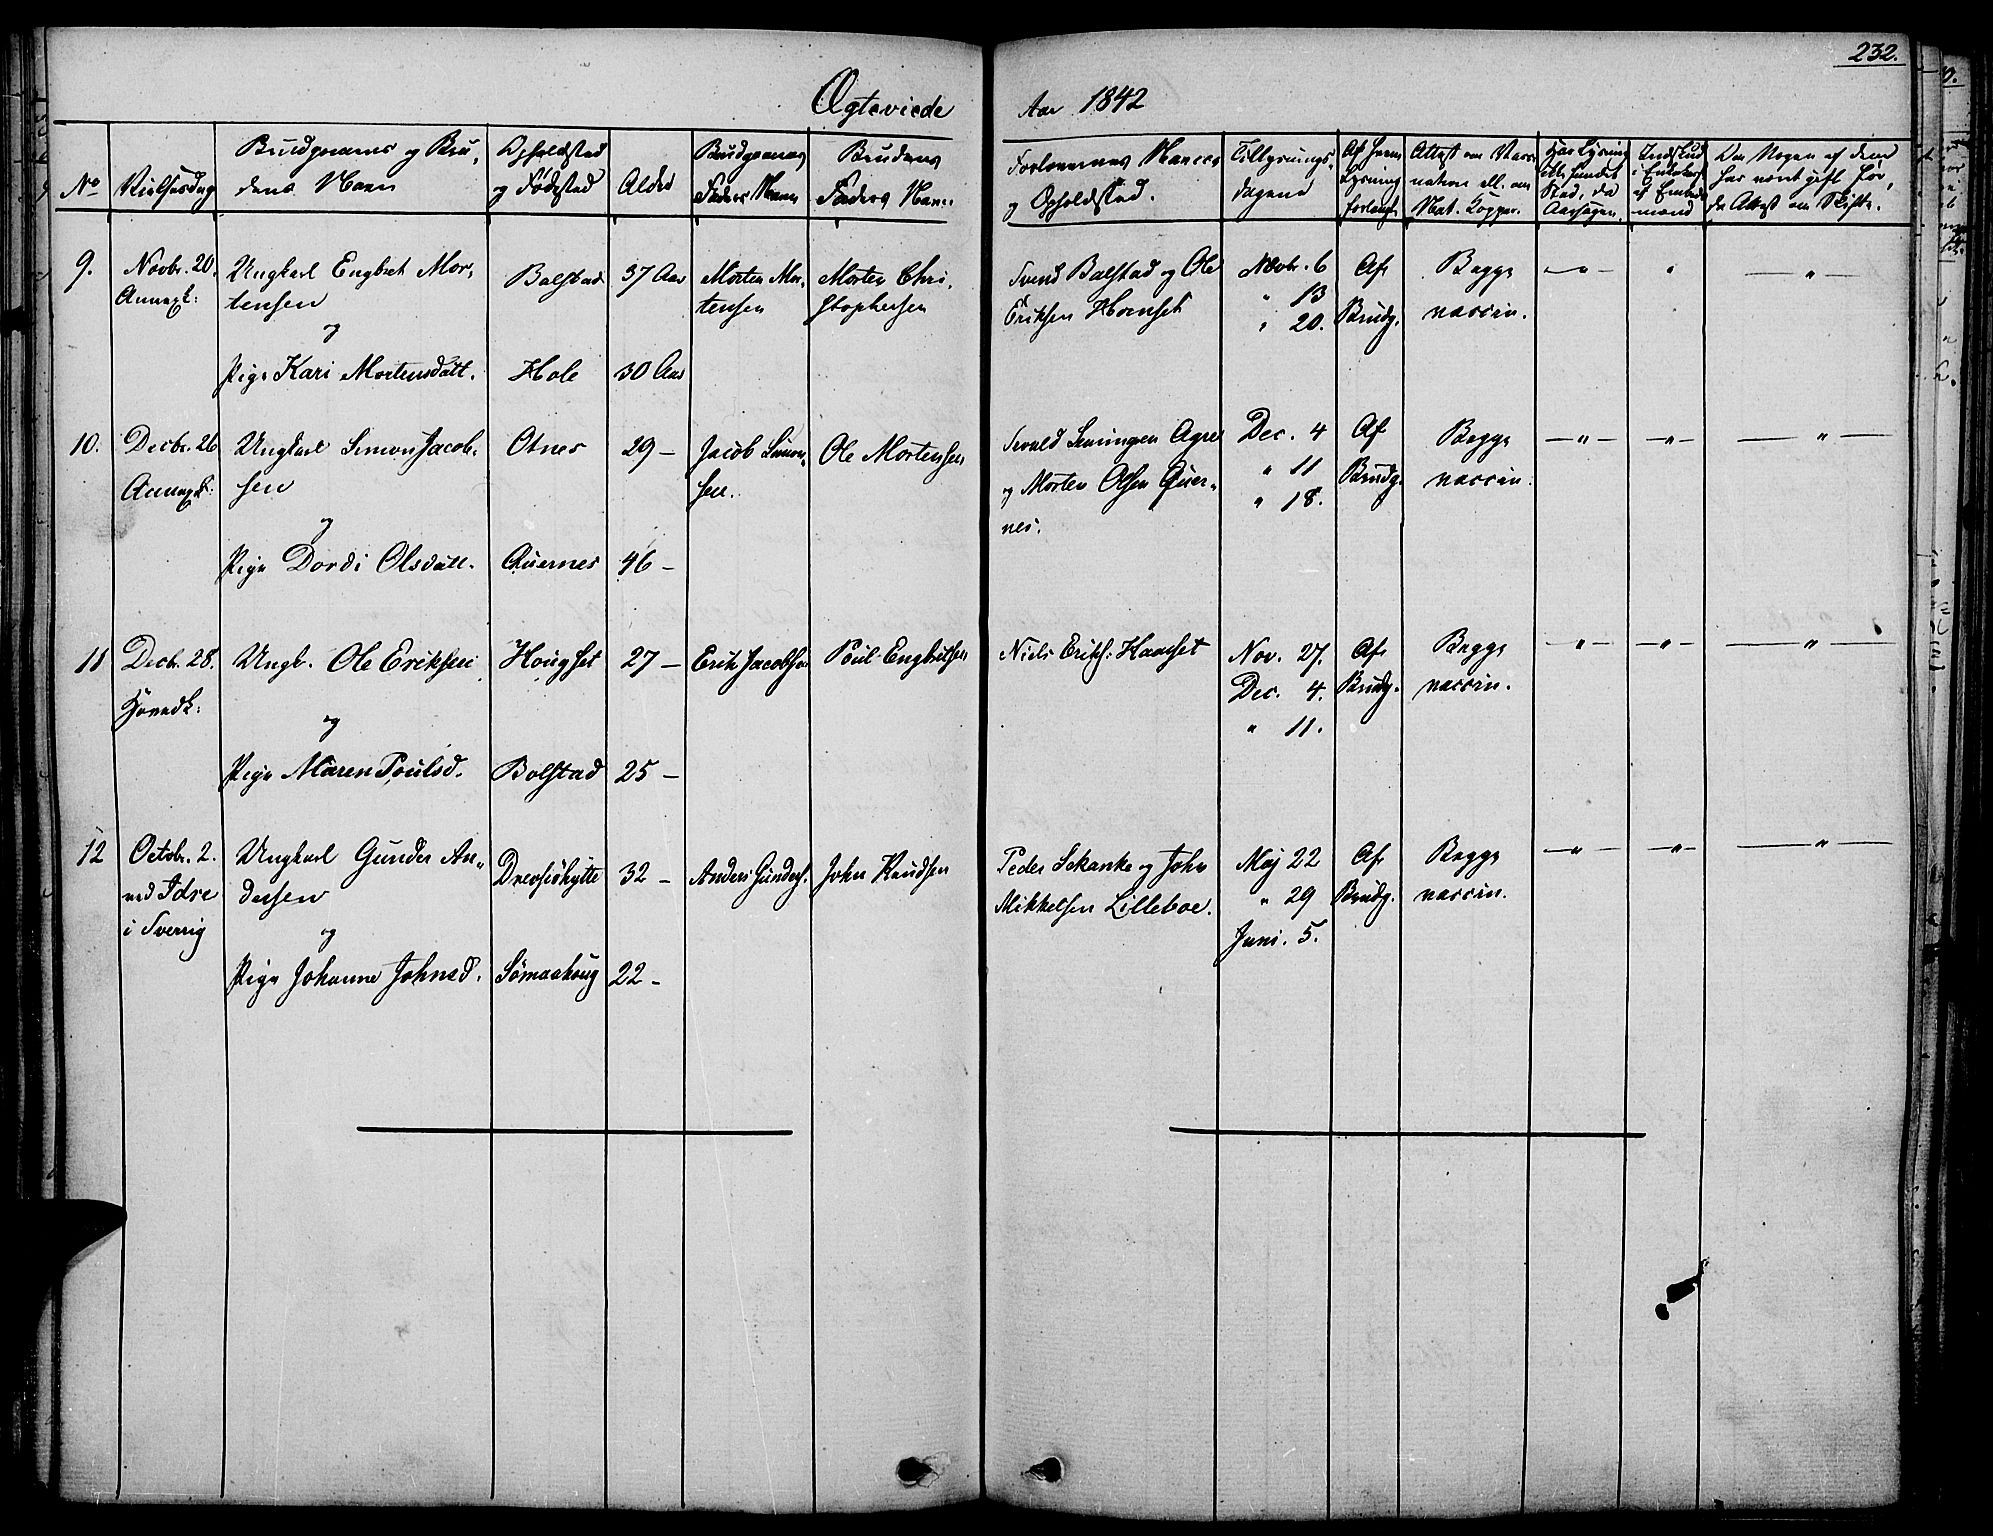 232.
Ægteviede Aar 1842
No Vielsesdag Brudgoms og Bru-
dens Navn Opholdsted
og Fødested Alder Brudgommens
Faders Navn Brudens
Faders Navn Forlovernes Navne
og Opholdsted. Tillysnings-
dagene Af hvem
Lysning
forlangt Attest om Vacci-
nation ell. om
Nat. Kopper. Har Lysning
ikke fundet
Sted, da
Aarsagen. Indskud
i Enkekas.
af Embeds-
mænd Der Nogen af dem
har været gift før,
da Attest om Skifte.
9. Novbr. 20.
Annext:
Ungkarl Engbret Mor-
tensen
og
Pige Kari Mortensdatt.
Bolstad
Hole
37 Aar
30 Aar
Morten Mor-
tensen
Morten Chri-
stophersen
Svend Bolstad og Ole
Eriksen Hornset
Novbr. 6
" 13
" 20.
Af
Brudg.
Begge
vaccin.
—"— " —"—
10. Decbr. 26
Annext:
Ungkarl Simon Jacob-
sen
og
Pige Dordi Olsdatt.
Otnes
Quernes
29 —
46 —
Jacob Simon-
sen.
Ole Mortensen
Agre
og Morten Olsen Quer-
nes.
Dec. 4
" 11
" 18.
Af
Brudg.
Begge
vaccin.
—"— —"— —"—
11 Decb. 28.
Hovedk:
Ungk. Ole Eriksen
og
Pige Maren Poulsd.
Hougset
Bolstad
27 —
25 —
Erik Jacobsen
Poul Engbretsen
Niels Eriks: Haarset
Nov. 27.
Dec. 4.
" 11.
Af
Brudg.
Begge
vaccin.
—"— —"— —"—
12 Octobr. 2.
ved Idre
i Sverrig
Ungkarl Gunder An-
dersen
og
Pige Johanne Johnsd.
Drevsiøhytte
Sømaahoug
32 —
22 —
Anders Gunders.
John Knudsen
Peder Schanke og John
Mikkelsen Lilleboe.
Maj 22
" 29
Juni. 5.
Af
Brudg.
Begge
vaccin.
—"— —"— —"—